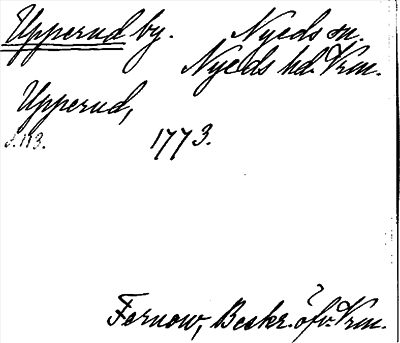 Upperud by. Nyeds sn.
Nyeds hd. Vrm.
Upperud,
s. 113. 1773.
Fernow, Beskr. öfv. Vrm.